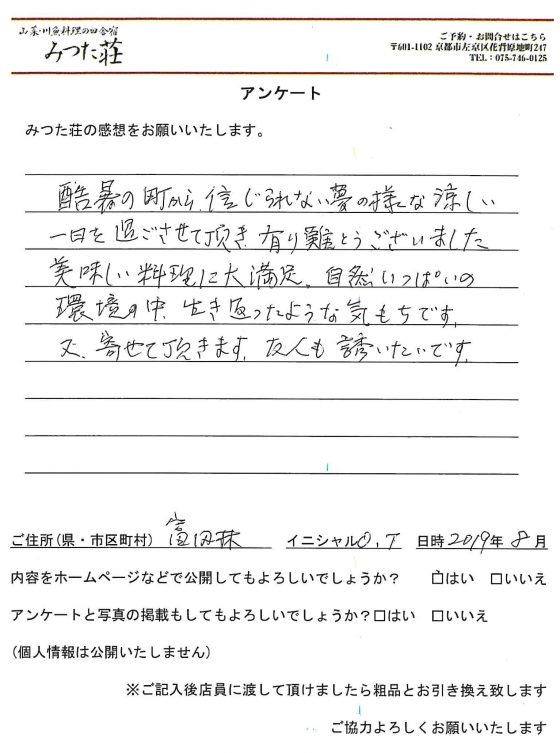 山菜・川魚料理の田舎宿
みつた荘
ご予約・お問合せはこちら
〒601-1102 京都市左京区花背原地町247
TEL：075-746-0125
アンケート
みつた荘の感想をお願いいたします。
酷暑の町から、信じられない夢の様な涼しい
一日を過ごさせて頂き、有り難とうございました
美味しい料理に大満足、自然いっぱいの
環境の中、生き返ったような気もちです。
又、寄せて頂きます。友人も誘いたいです。
ご住所（県・市区町村） 富田林 イニシャル O.T 日時 2019年 8月
内容をホームページなどで公開してもよろしいでしょうか？ □はい □いいえ
アンケートと写真の掲載もしてもよろしいでしょうか？□はい □いいえ
（個人情報は公開いたしません）
※ご記入後店員に渡して頂けましたら粗品とお引き換え致します
ご協力よろしくお願いいたします